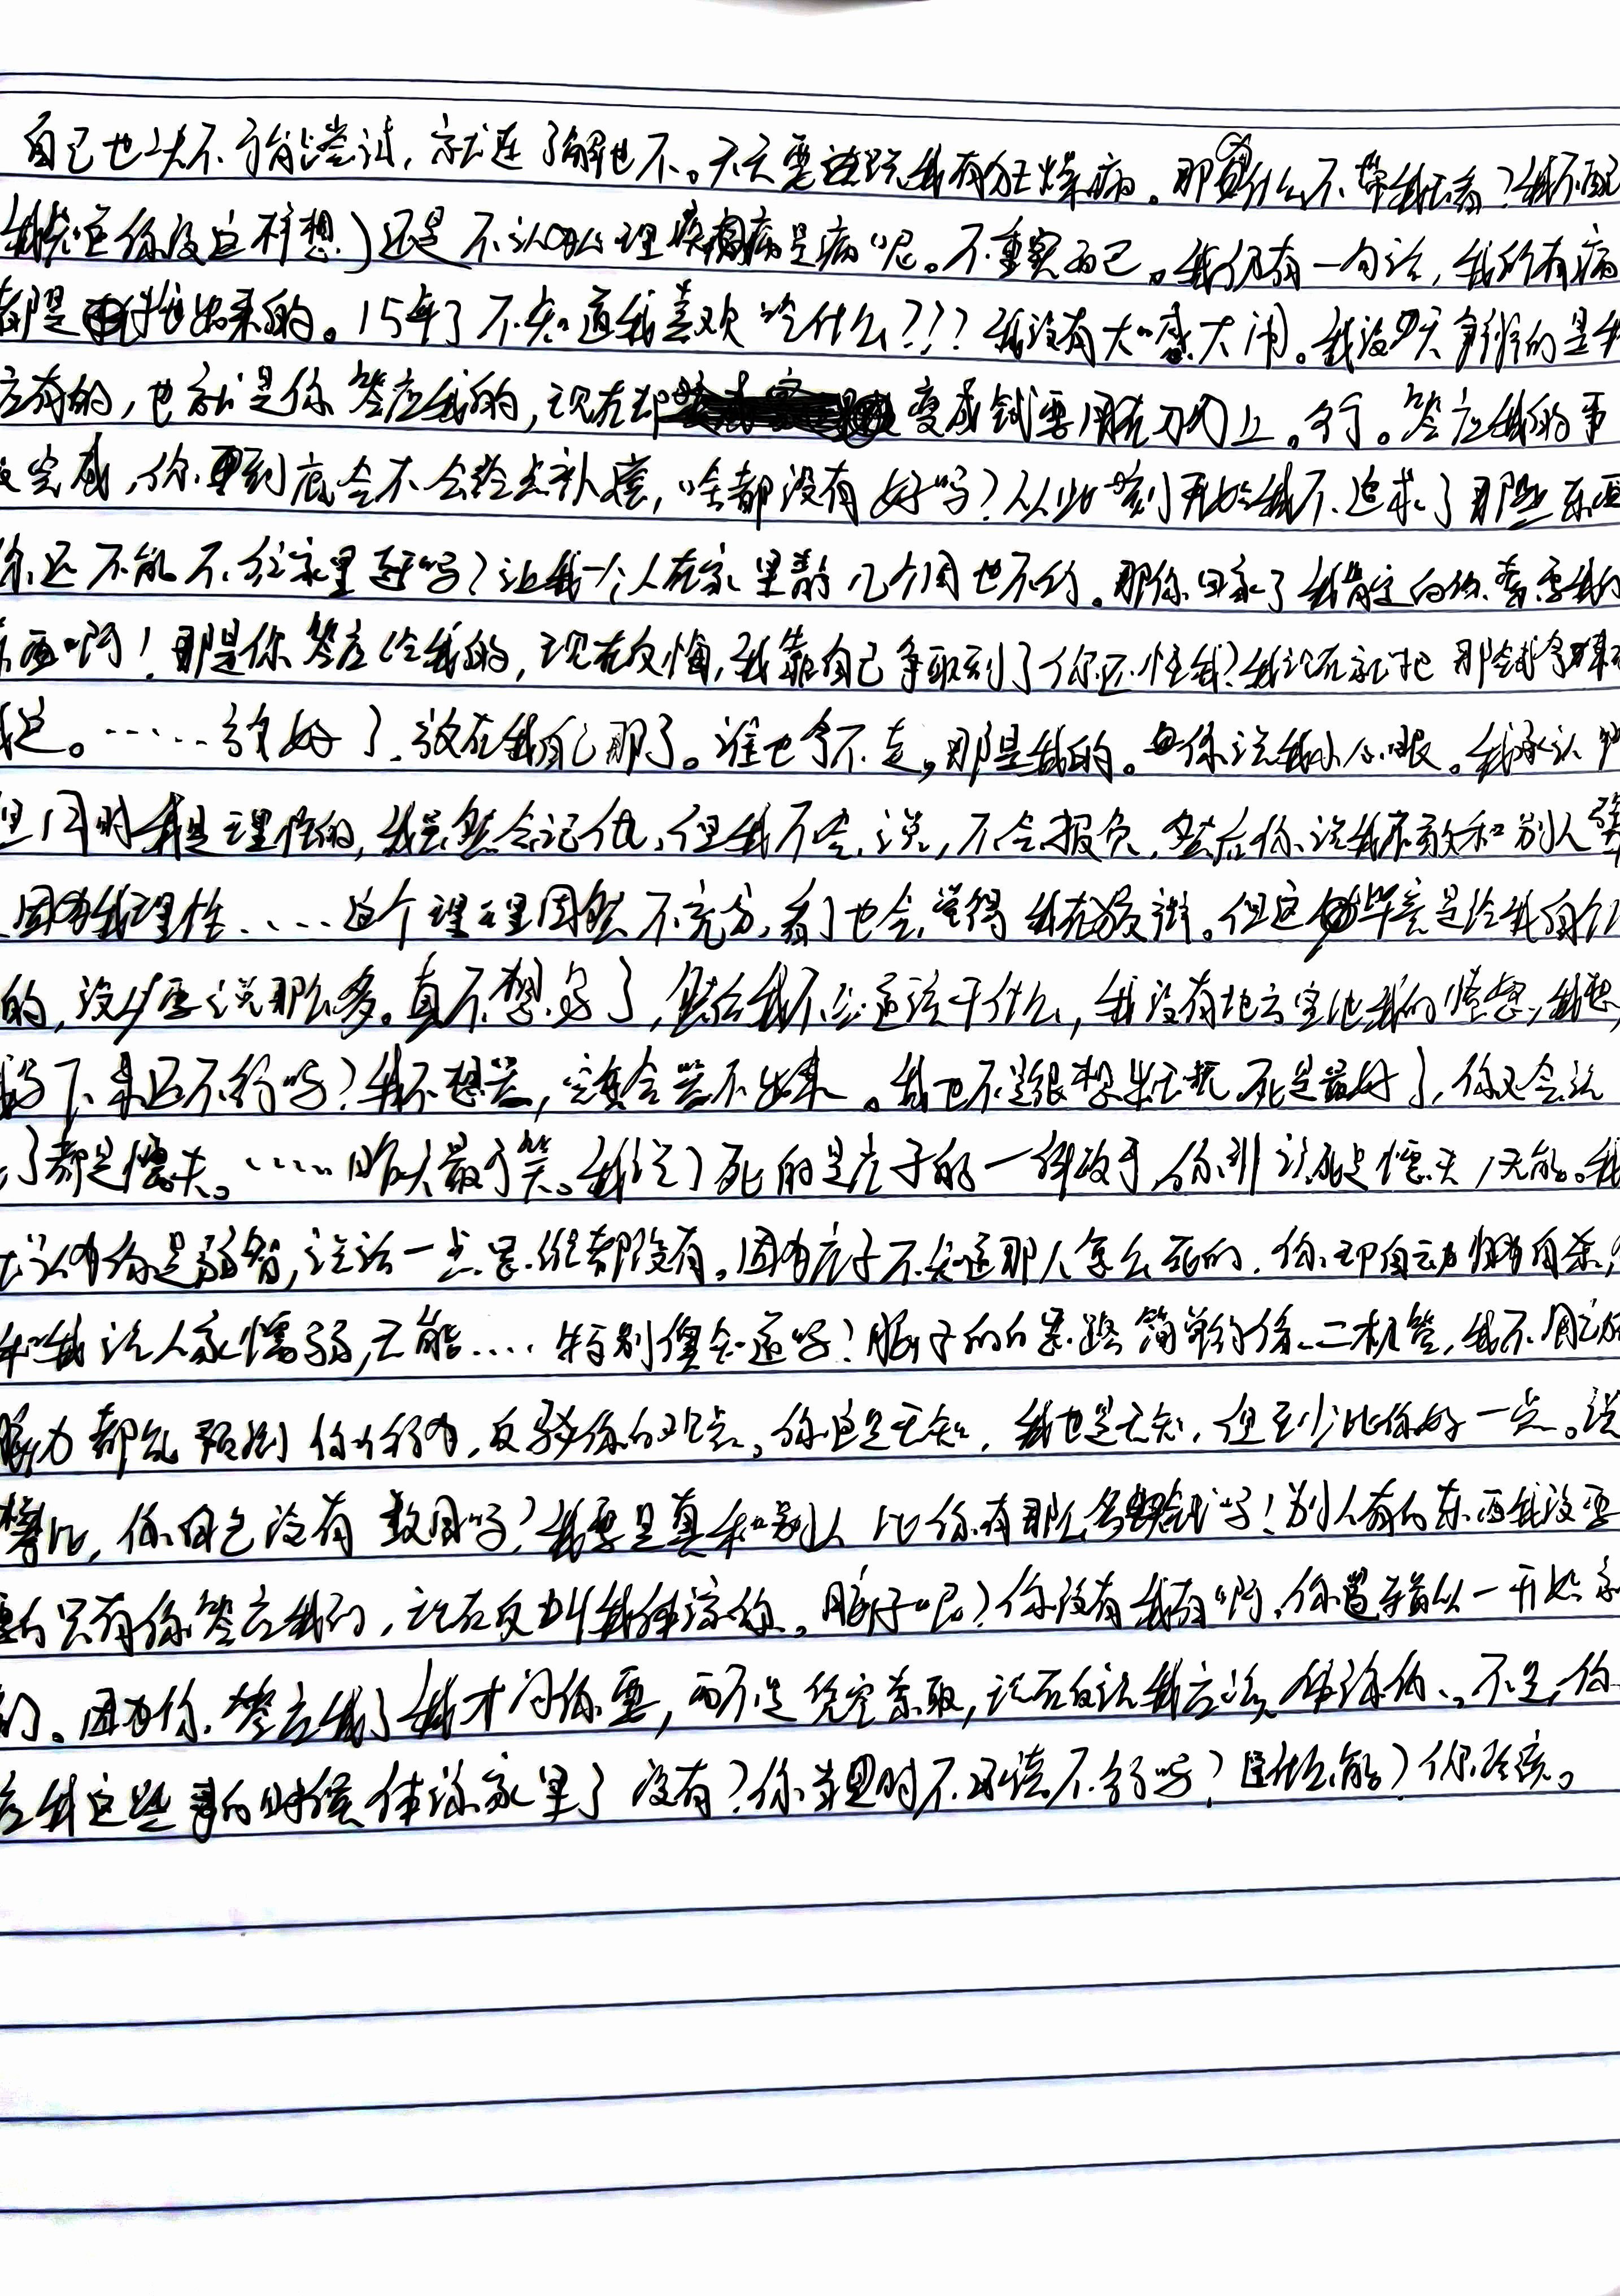 自己也从不肯尝试，就连了解也不。天天要说我有狂燥病。那为什么不带我去看？我不配
我先定你没这样想）还是不认为心理疾病是病呢。不重要而已。我仍有一句话，我所有病
都是 出来的。15年了不知道我喜欢吃什么？？？我没有大喊大闹。我没 天 的是我
应有的，也就是你答应我的，现在却 变成钱要用在刀刃上。行。答应我的事
没完成，你 到底会不会给点补偿，啥都没有好吗？从此刻开始我不追求了那些东西
你还不能不往家里赶吗？让我一个人在家里静几个周也不行。那你回家了我肯定向你索要我的
东西啊！那是你答应给我的，现在反悔，我靠自己争取到了你还怪我？我现在就把那钱拿
。……放好了，放在我自己那了。谁也拿不走，那是我的。 你说我小心眼。我承认
但同时我是理性的，我虽然会记仇，但我不会说，不会报负，然后你说我不敢和别人
因为我理性……这个理由固然不充分，看了也会觉得我在狡辩。但这毕竟是给我自己
的，没必要说那么多。真不想写了，然后我不知道该干什么，我没有地方宣泄我的愤怒，我想
下来还不行吗？我不想哭， 会哭不出来。我也不是很想 死是最好了，你又会说
了都是懦夫。……昨天最可笑。我说了死的是庄子的一个故事 你 说死是懦夫，无能。我
认为你是弱智，说话一点思维都没有。因为庄子不知道那人怎么死的，你却自动 为自杀，
和我说人家懦弱，无能……特别傻知道吗？脑子的思路简单的像二极管，我不用
脑力都能预测你的行为，反驳你的观点。你这是无知，我也是无知，但至少比你好一点。说
攀比，你自己没有数目吗？我要是真和别人比你有那么多 钱吗！别人有的东西我没要
要的只有你答应我的，现在反叫我体谅你。脑子呢？你没有我有啊，你 从一开始
的。因为你答应我了我才问你要，而不是凭空索取，现在自说我应该体谅你。不是，你
应我这些事的时候体谅家里了没有？你当时不 不行吗？ 能？你活该。